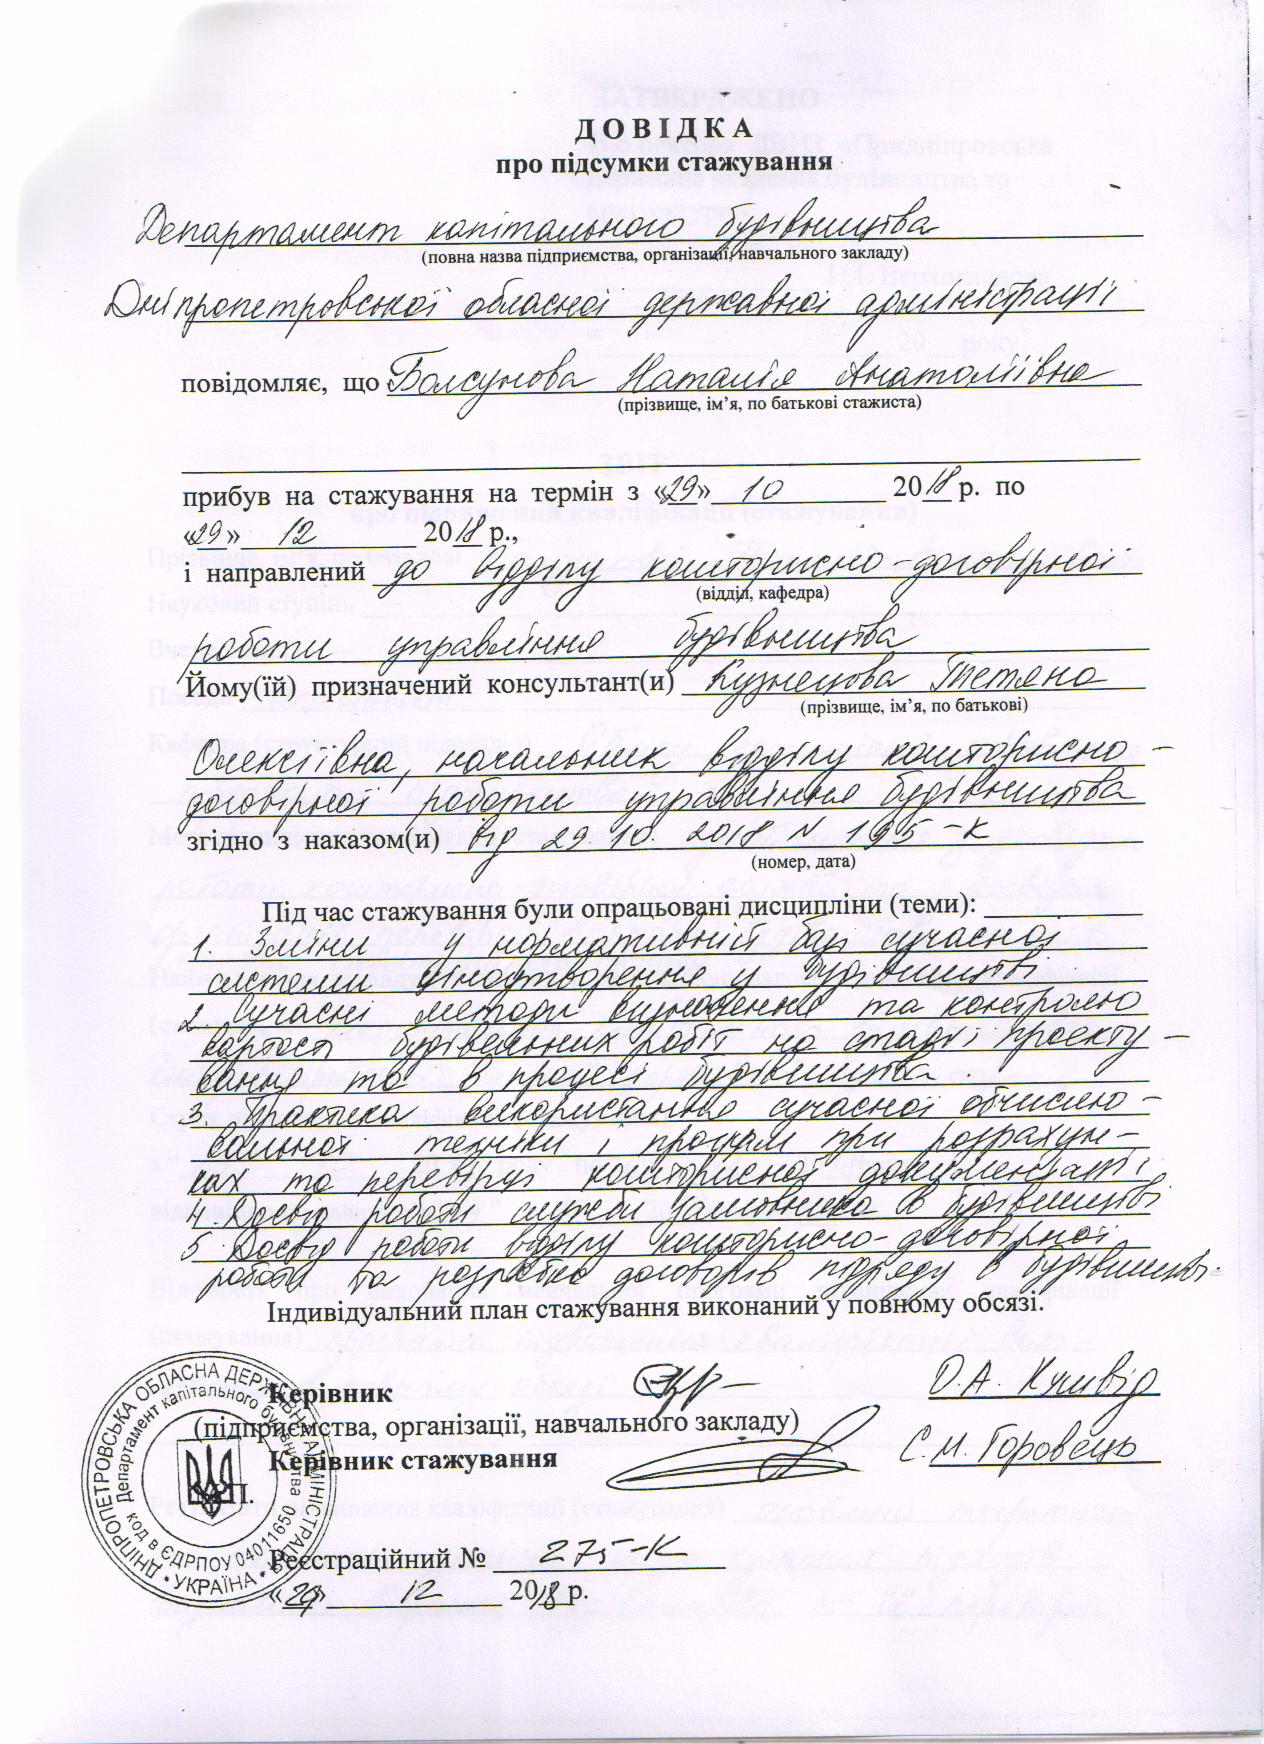 ДОВІДКА
про підсумки стажування
Департамент капітального будівництва
(повна назва підприємства, організації, навчального закладу)
Дніпропетровської обласної державної адміністрації
повідомляє, що Болсунова Наталія Анатоліївна
(прізвище, ім’я, по батькові стажиста)
прибув на стажування на термін з «29» 10 2018 р. по
«29» 12 2018 р.,
і направлений до відділу кошторисно-договірної
(відділ, кафедра)
роботи управління будівництва
Йому(їй) призначений консультант(и) Кузнецова Тетяна
(прізвище, ім’я, по батькові)
Олексіївна, начальник відділу кошторисно-
договірної роботи управління будівництва
згідно з наказом(и) від 29.10.2018 N 195-К
(номер, дата)
Під час стажування були опрацьовані дисципліни (теми):
1. Зміни у нормативній базі сучасної
системи ціноутворення у будівництві
2. Сучасні методи визначення та контролю
вартості будівельних робіт на стадії проекту-
вання та в процесі будівництва
3. Практика використання сучасної обчислю-
вальної техніки і програм при розрахун-
ках та перевірці кошторисної документації
4. Досвід роботи служби замовника в будівництві
5 Досвід роботи відділу кошторисно-договірної
роботи та розробка договорів підряду в будівництві.
Індивідуальний план стажування виконаний у повному обсязі.
Керівник
(підприємства, організації, навчального закладу)
Керівник стажування С.М. Горовець
М.П.
Реєстраційний № 275-К
«29» 12 2018 р.
ДНІПРОПЕТРОВСЬКА ОБЛАСНА ДЕРЖАВНА АДМІНІСТРАЦІЯ • УКРАЇНА •
Департамент капітального будівництва
код в ЄДРПОУ 04011650